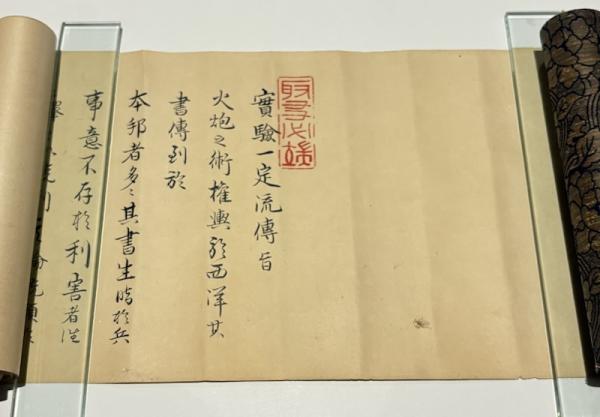 取友必端
實驗一定流傳旨
火炮之術權輿於西洋其
書傳到於
本邦者多々其書生暗於兵
事意不存於利害者往